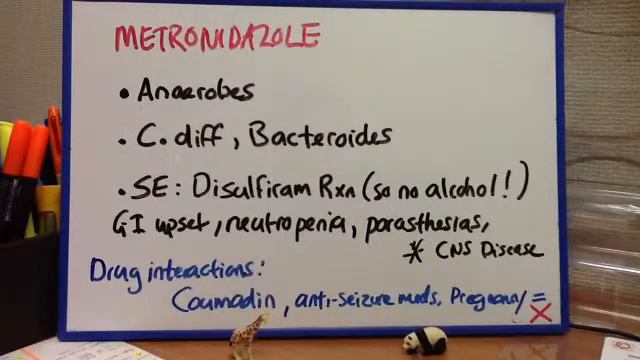 METRONIDAZOLE
• Anaerobes
• C. diff, Bacteroides
• SE: Disulfiram Rxn (so no alcohol!)
GI upset, neutropenia, parasthesias,
* CNS Disease
Drug interactions:
Coumadin, anti-seizure meds, Pregnancy = X